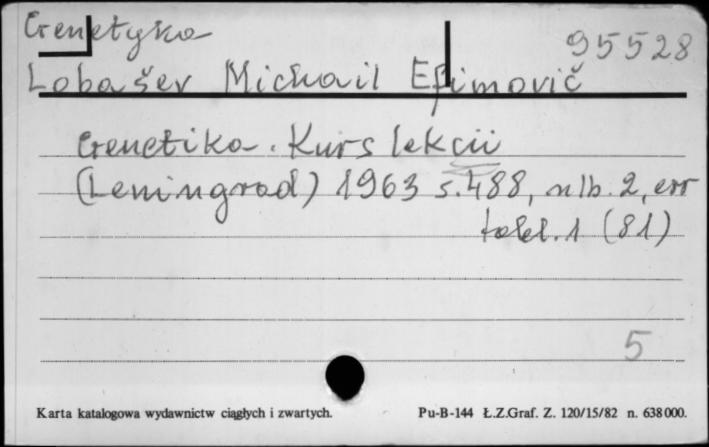 Genetyka
95528
Lobašev Michail Efimovič
Genetika. Kurs lekcii
(Leningrad) 1963 s. 488, nlb. 2, err
tabl. 1 (81)
5
Karta katalogowa wydawnictw ciągłych i zwartych. Pu-B-144 Ł.Z.Graf. Z. 120/15/82 n. 638000.